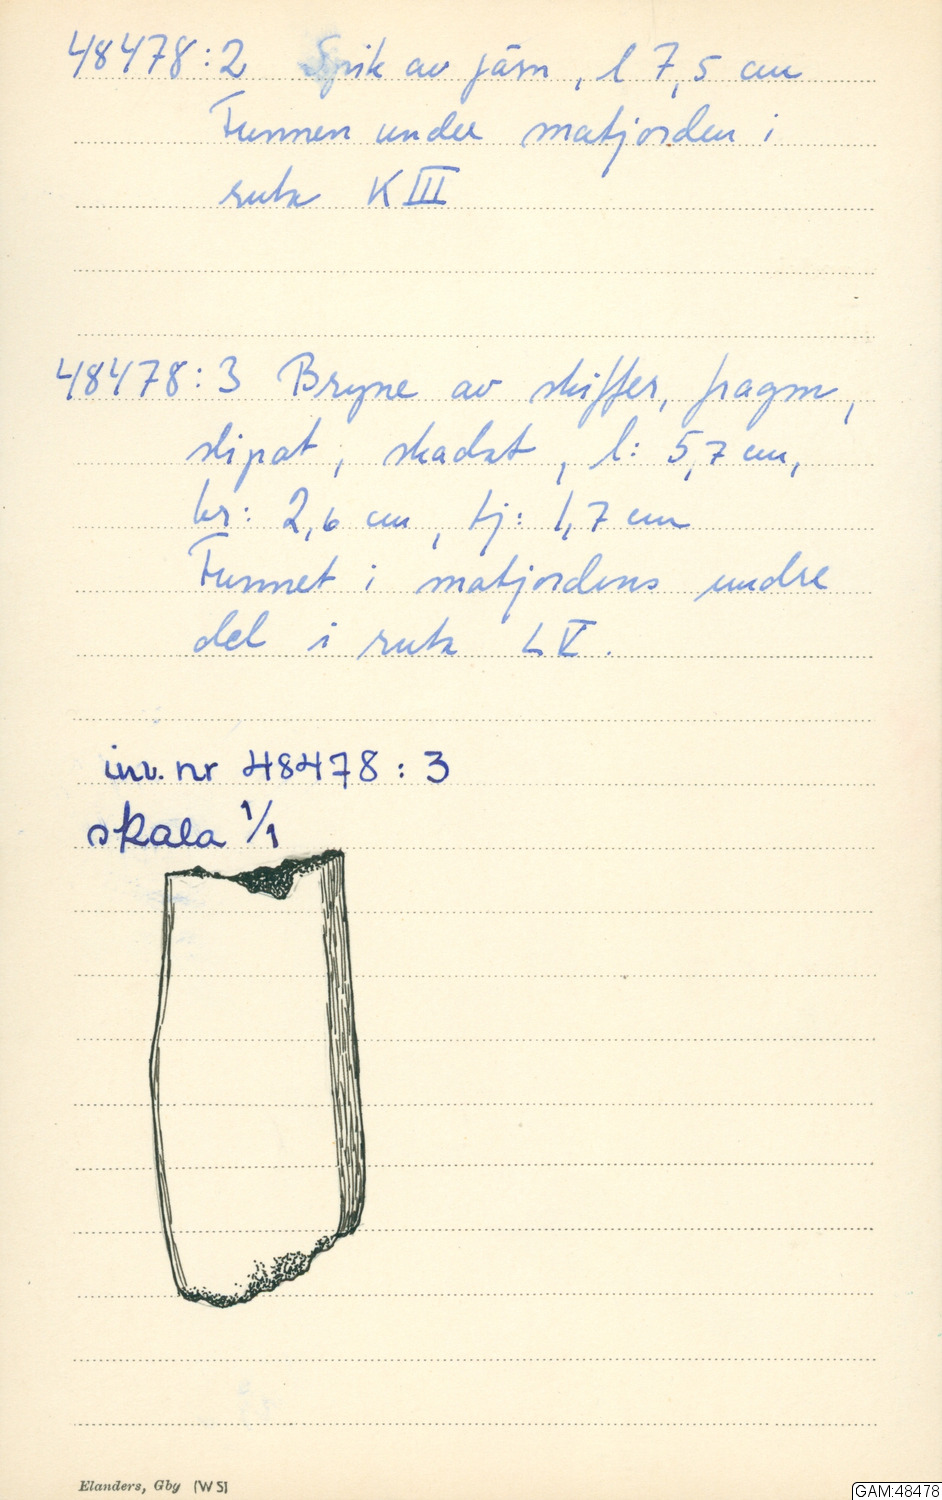 48478:2 Spik av järn, l 7,5 cm
Funnen under matjorden i
ruta K III
48478:3 Bryne av skiffer, fragm,
slipat, skadat, l: 5,7 cm,
br: 2,6 cm, tj: 1,7 cm
Funnet i matjordens undre
del i ruta L V.
inv. nr 48478:3
skala 1/1
Elanders, Gby (WS)
GAM:48478